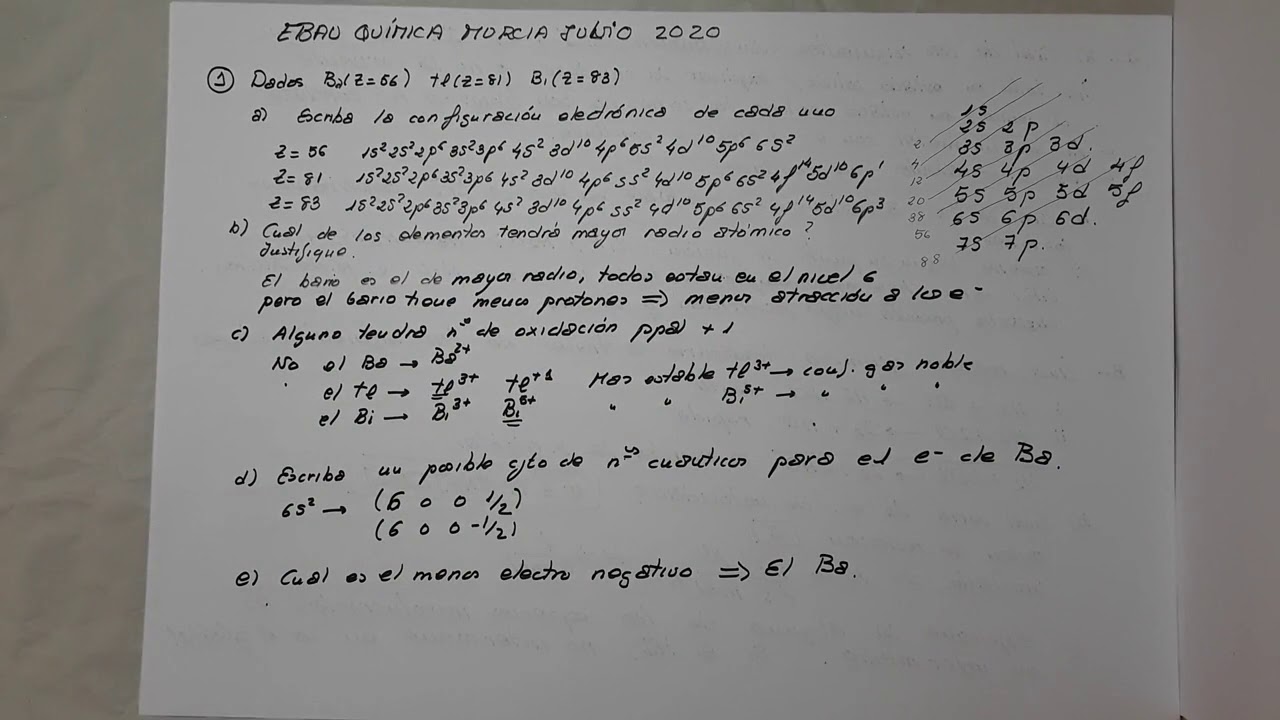 EBAU QUÍMICA MURCIA JULIO 2020
① Dados Ba(Z=56) tl(Z=81) Bi(Z=83)
a) Escriba la configuración electrónica de cada uno
Z=56 1s²2s²2p⁶3s²3p⁶4s²3d¹⁰4p⁶5s²4d¹⁰5p⁶6s²
Z=81 1s²2s²2p⁶3s²3p⁶4s²3d¹⁰4p⁶5s²4d¹⁰5p⁶6s²4f¹⁴5d¹⁰6p¹
Z=83 1s²2s²2p⁶3s²3p⁶4s²3d¹⁰4p⁶5s²4d¹⁰5p⁶6s²4f¹⁴5d¹⁰6p³
1s
2s 2p
2 3s 3p 3d.
4 4s 4p 4d 4f
12 5s 5p 5d 5f
20 6s 6p 6d.
38 7s 7p.
56
88
b) Cual de los elementos tendrá mayor radio atómico?
Justifique.
El bario es el de mayor radio, todos estan en el nivel 6
pero el bario tiene menos protones => menor atracción a los e-
c) Alguno tendra nºˢ de oxidación ppal +1
No el Ba → Ba²⁺
el tl → tl³⁺ tl⁺¹ Mas estable tl³⁺ → conf. gas noble
el Bi → Bi³⁺ Bi⁵⁺ " " Bi⁵⁺ → " " "
d) Escriba un posible cjto de nºˢ cuánticos para el e- de Ba.
6s² → (6 0 0 1/2)
(6 0 0 -1/2)
e) Cual es el menos electro negativo => El Ba.